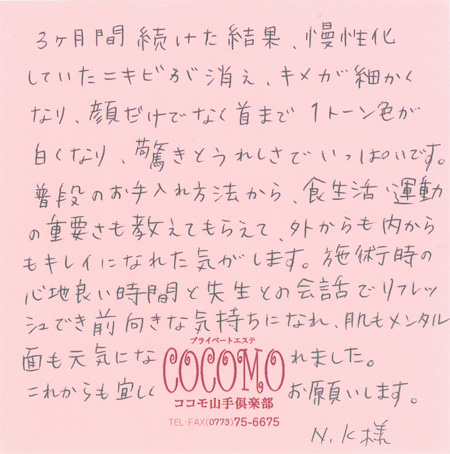 3ヶ月間続けた結果、慢性化
していたニキビが消え、キメが細かく
なり、顔だけでなく首まで1トーン色が
白くなり、驚きとうれしさでいっぱいです。
普段のお手入れ方法から、食生活・運動
の重要さも教えてもらえて、外からも内から
もキレイになれた気がします。施術時の
心地良い時間と先生との会話でリフレッ
シュでき前向きな気持ちになれ、肌もメンタル
プライベートエステ
面も元気になれました。
COCOMO
これからも宜しくお願いします。
ココモ山手倶楽部
TEL・FAX(0773)75-6675
N.K様